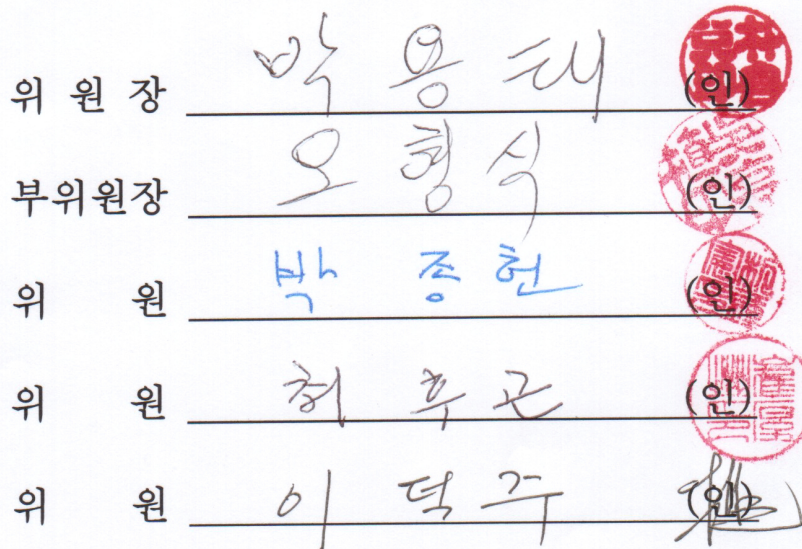 위 원 장 박 용 태 (인)
부위원장 오 형 식 (인)
위 원 박 종 헌 (인)
위 원 허 후 근 (인)
위 원 이 덕 주 (인)